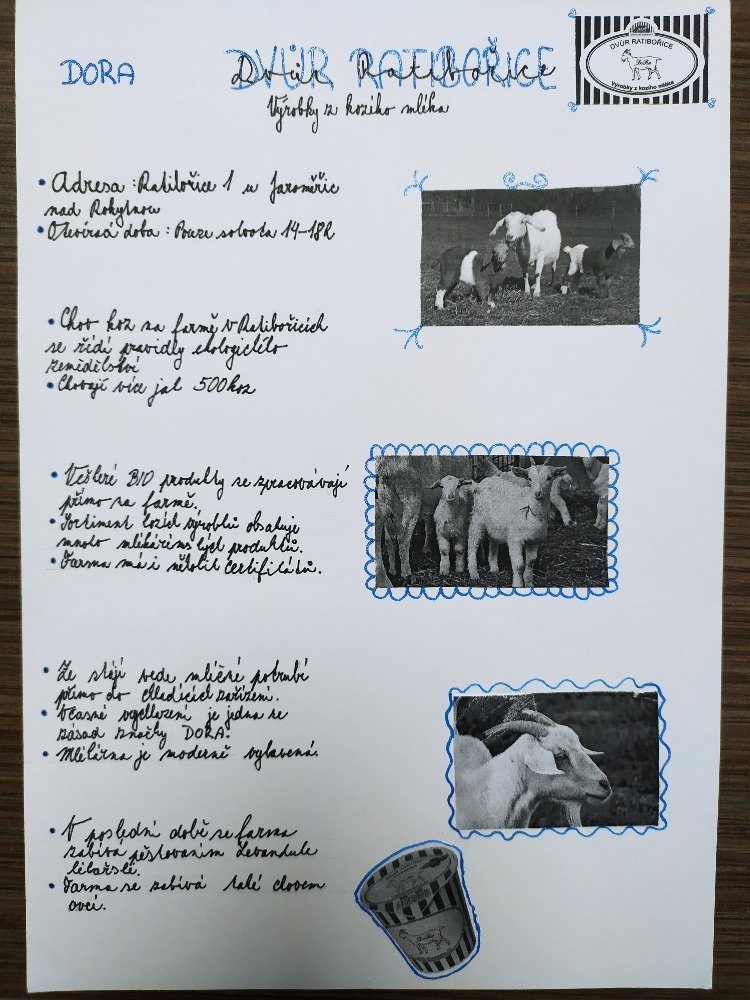 DORA
DVŮR RATIBOŘICE
Dvůr Ratibořice
Výrobky z kozího mléka
DVŮR RATIBOŘICE
DoRa
Výrobky z kozího mléka
• Adresa : Ratibořice 1 u Jaroměřic
nad Rokytnou
• Otvírací doba : Pouze sobota 14-18h
• Chov koz na farmě v Ratibořicích
se řídí pravidly ekologického
zemědělství
• Chovají více jak 500 koz
• Veškeré BIO produkty se zpracovávají
přímo na farmě.
• Sortiment kozích výrobků obsahuje
mnoho mlékárenských produktů.
• Farma má i několik certifikátů.
• Ze stájí vede mléčné potrubí
přímo do chladících zařízení.
• Včasné vychlazení je jedna ze
zásad značky DORA.
• Mlékárna je moderně vybavená.
• V poslední době se farma
zabívá pěstováním Levandule
lékařské.
• Farma se zabívá také chovem
ovcí.